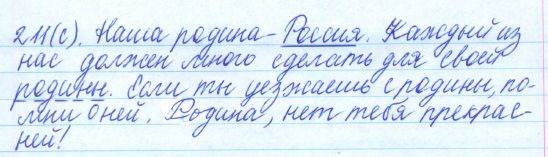 211(с). Наша родина - Россия. Каждый из
нас должен много сделать для своей
родины. Если ты уезжаешь с родины, по-
мни о ней. Родина, нет тебя прекрас-
ней!